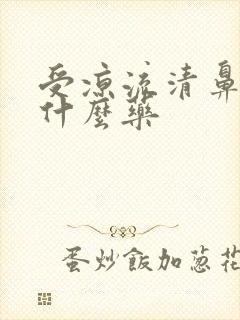 受凉流清鼻
什麼藥
蛋炒飯加葱花